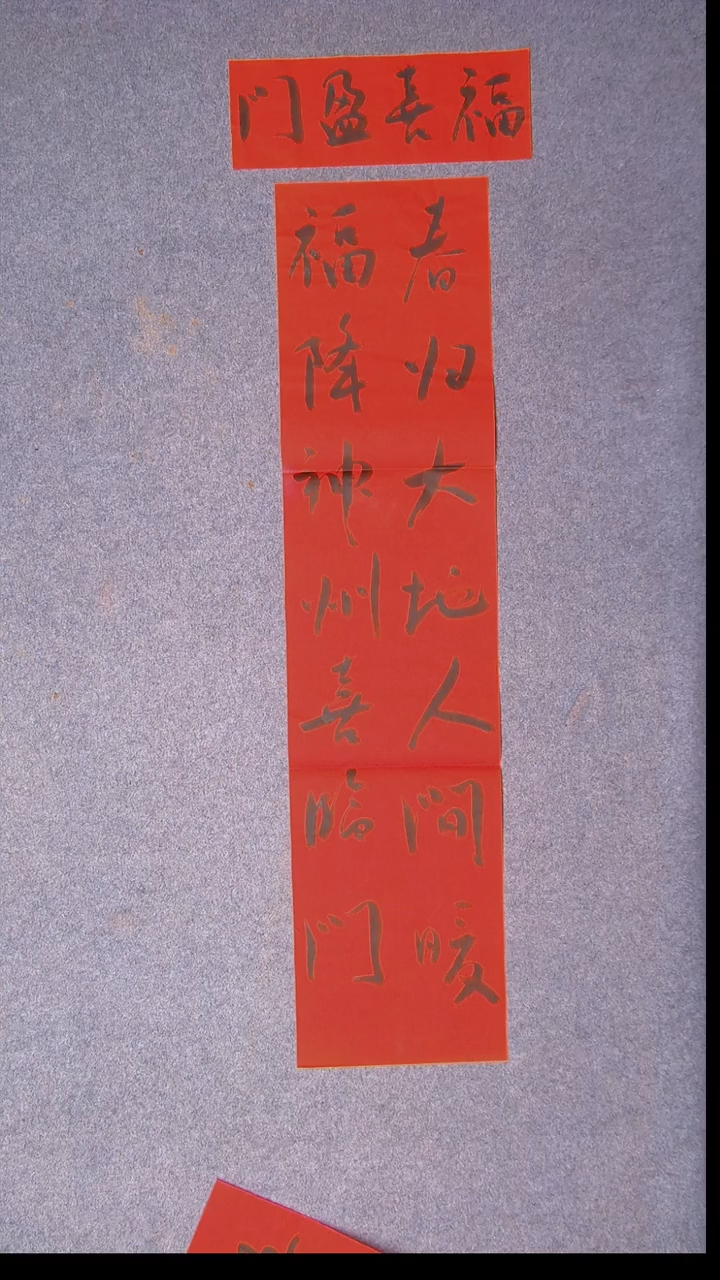 福喜盈门
春归大地人间暖
福降神州喜临门